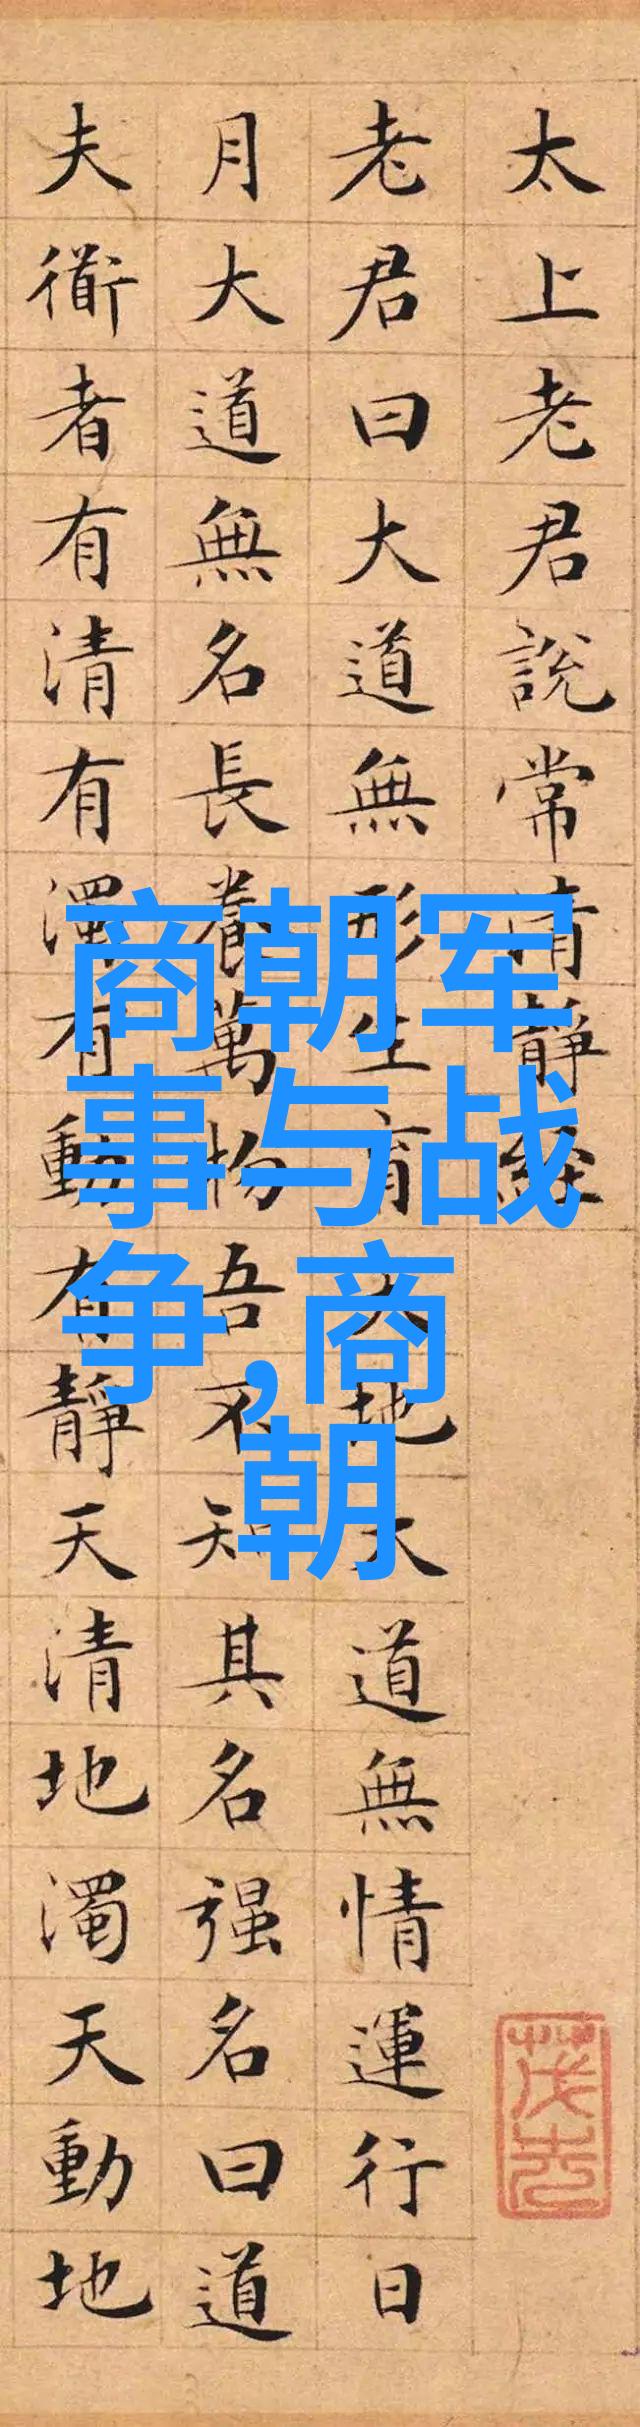 太上老君說常清靜經
老君曰大道無形生育天地大道無情運行日
月大道無名長養萬物吾不知其名强名曰道
夫衜者有清有濁有動有靜天清地濁天動地
商朝军
事与战
争,商
朝